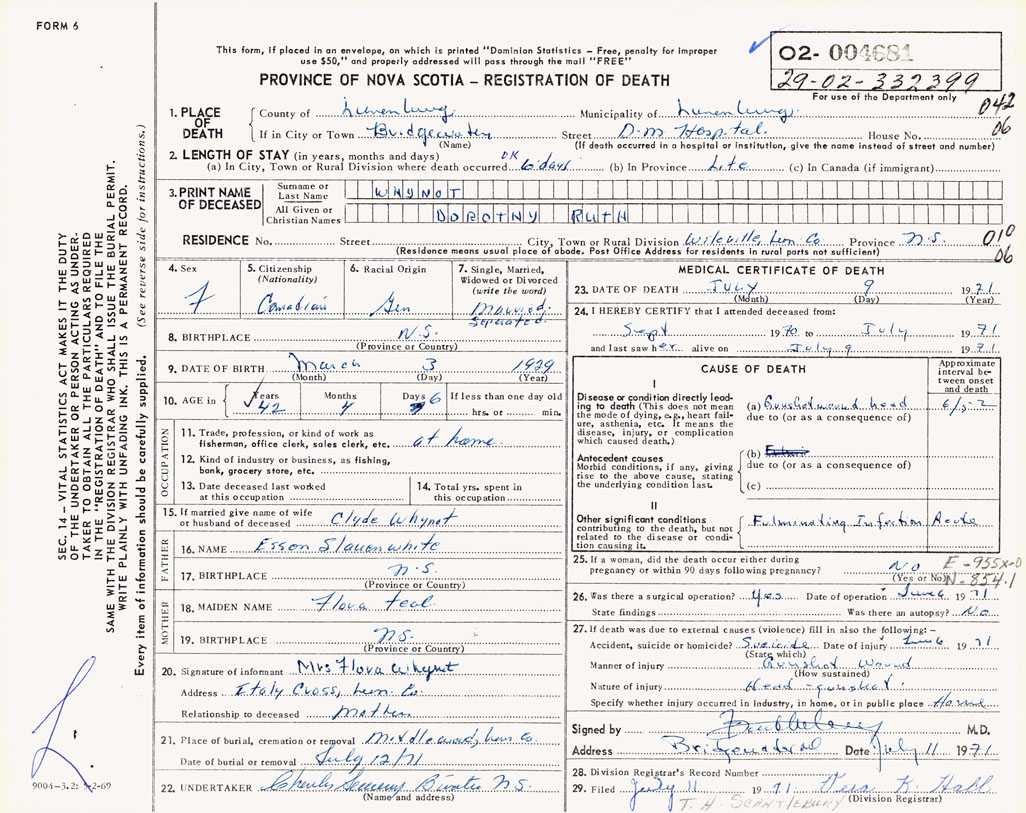 FORM 6
This form, if placed in an envelope, on which is printed "Dominion Statistics – Free, penalty for improper
use $50," and properly addressed will pass through the mail "FREE"
PROVINCE OF NOVA SCOTIA – REGISTRATION OF DEATH
02- 004681
29-02-332399
For use of the Department only
042
06
1. PLACE OF DEATH
County of Lunenburg Municipality of Lunenburg
If in City or Town Bridgewater Street D.M. Hospital House No.
(Name) (If death occurred in a hospital or institution, give the name instead of street and number)
2. LENGTH OF STAY (in years, months and days)
OK
(a) In City, Town or Rural Division where death occurred 6 days (b) In Province Life (c) In Canada (if immigrant)
3. PRINT NAME OF DECEASED
Surname or Last Name WHYNOT
All Given or Christian Names DOROTHY RUTH
RESIDENCE No. Street City, Town or Rural Division Wileville, Lun. Co Province N.S.
(Residence means usual place of abode. Post Office Address for residents in rural parts not sufficient)
010
06
4. Sex F
5. Citizenship (Nationality) Canadian
6. Racial Origin Ger
7. Single, Married, Widowed or Divorced (write the word) Married Separated
8. BIRTHPLACE N.S.
(Province or Country)
9. DATE OF BIRTH March 3 1929
(Month) (Day) (Year)
10. AGE in Years 42 Months 4 Days 6 If less than one day old
hrs. or min.
OCCUPATION
11. Trade, profession or kind of work as
fisherman, office clerk, sales clerk, etc. at home
12. Kind of industry or business, as fishing,
bank, grocery store, etc.
13. Date deceased last worked
at this occupation
14. Total yrs. spent in
this occupation
15. If married give name of wife
or husband of deceased Clyde Whynot
FATHER
16. NAME Esson Slauenwhite
17. BIRTHPLACE N.S.
(Province or Country)
MOTHER
18. MAIDEN NAME Flora Teal
19. BIRTHPLACE N.S.
(Province or Country)
20. Signature of informant Mrs Flora Whynot
Address Italy Cross, Lun. Co.
Relationship to deceased Mother
21. Place of burial, cremation or removal Middlewood, Lun Co.
Date of burial or removal July 12/71
22. UNDERTAKER Charles N.S.
(Name and address)
MEDICAL CERTIFICATE OF DEATH
23. DATE OF DEATH JULY 9 1971
(Month) (Day) (Year)
24. I HEREBY CERTIFY that I attended deceased from:
Sept 1970 to July 1971
and last saw her alive on July 9 1971
CAUSE OF DEATH
Approximate interval between onset and death
I
Disease or condition directly leading to death (This does not mean the mode of dying, e.g., heart failure, asthenia, etc. It means the disease, injury, or complication which caused death.)
(a) Gunshot wound head
due to (or as a consequence of)
Antecedent causes
Morbid conditions, if any, giving rise to the above cause, stating the underlying condition last.
(b)
due to (or as a consequence of)
(c)
II
Other significant conditions contributing to the death, but not related to the disease or condition causing it.
Fulminating Infection Acute
25. If a woman, did the death occur either during
pregnancy or within 90 days following pregnancy? No
(Yes or No)
E-955X-0
N-854.1
26. Was there a surgical operation? Yes Date of operation June 6 1971
State findings Was there an autopsy? No
27. If death was due to external causes (violence) fill in also the following: –
Accident, suicide or homicide? Suicide Date of injury June 6 1971
(State which)
Manner of injury Gunshot Wound
(How sustained)
Nature of injury Head - gunshot.
Specify whether injury occurred in industry, in home, or in public place Home
Signed by M.D.
Address Bridgewater Date July 11 1971
28. Division Registrar's Record Number
29. Filed July 11 1971 Vera K. Hall
(Division Registrar)
T. H. SCANTLEBURY
SEC. 14 – VITAL STATISTICS ACT MAKES IT THE DUTY
OF THE UNDERTAKER OR PERSON ACTING AS UNDER-
TAKER TO OBTAIN ALL THE PARTICULARS REQUIRED
IN THE "REGISTRATION OF DEATH" AND TO FILE THE
SAME WITH THE DIVISION REGISTRAR WHO SHALL ISSUE THE BURIAL PERMIT.
WRITE PLAINLY WITH UNFADING INK. THIS IS A PERMANENT RECORD.
Every item of information should be carefully supplied. (See reverse side for instructions.)
9004-3.2: 9-2-69